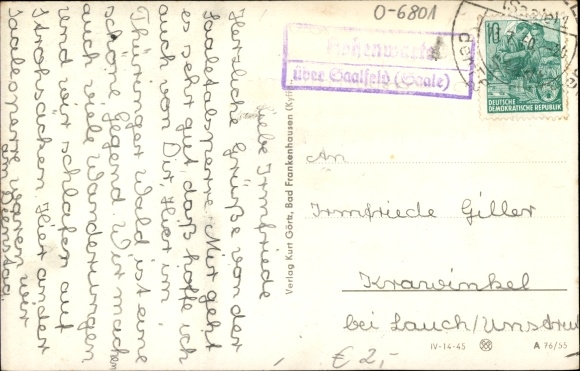 0-6801
Hohenwarte
über Saalfeld (Saale)
10
DEUTSCHE
DEMOKRATISCHE REPUBLIK
Liebe Irmfriede
Herzliche Grüße von der
Saaletalsperre. Mir geht
es sehr gut, daß hoffe ich
auch von Dir. Hier im
Thüringer Wald ist eine
schöne Gegend. Wir machen
auch viele Wanderungen
und wir schlafen auf
Strohsäcken. Hier an der
Saalesperre waren wir
am Dienstag.
Verlag Kurt Görtz, Bad Frankenhausen (Kyffh
An
Irmfriede Giller
Krawinkel
bei Lauch/Unstrut
€ 2,-
IV-14-45
A 76/55